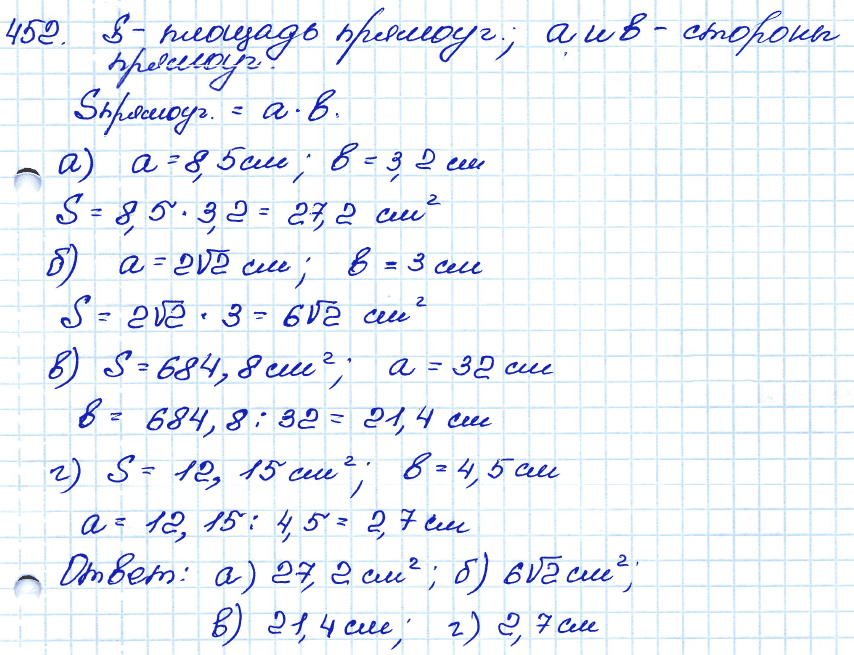 452. S - площадь прямоуг.; a и b - стороны
прямоуг.
Sпрямоуг. = a · b.
а) a = 8,5 см; b = 3,2 см
S = 8,5 · 3,2 = 27,2 см²
б) a = 2√2 см; b = 3 см
S = 2√2 · 3 = 6√2 см²
в) S = 684,8 см²; a = 32 см
b = 684,8 : 32 = 21,4 см
г) S = 12,15 см²; b = 4,5 см
a = 12,15 : 4,5 = 2,7 см
Ответ: а) 27,2 см²; б) 6√2 см²;
в) 21,4 см; г) 2,7 см